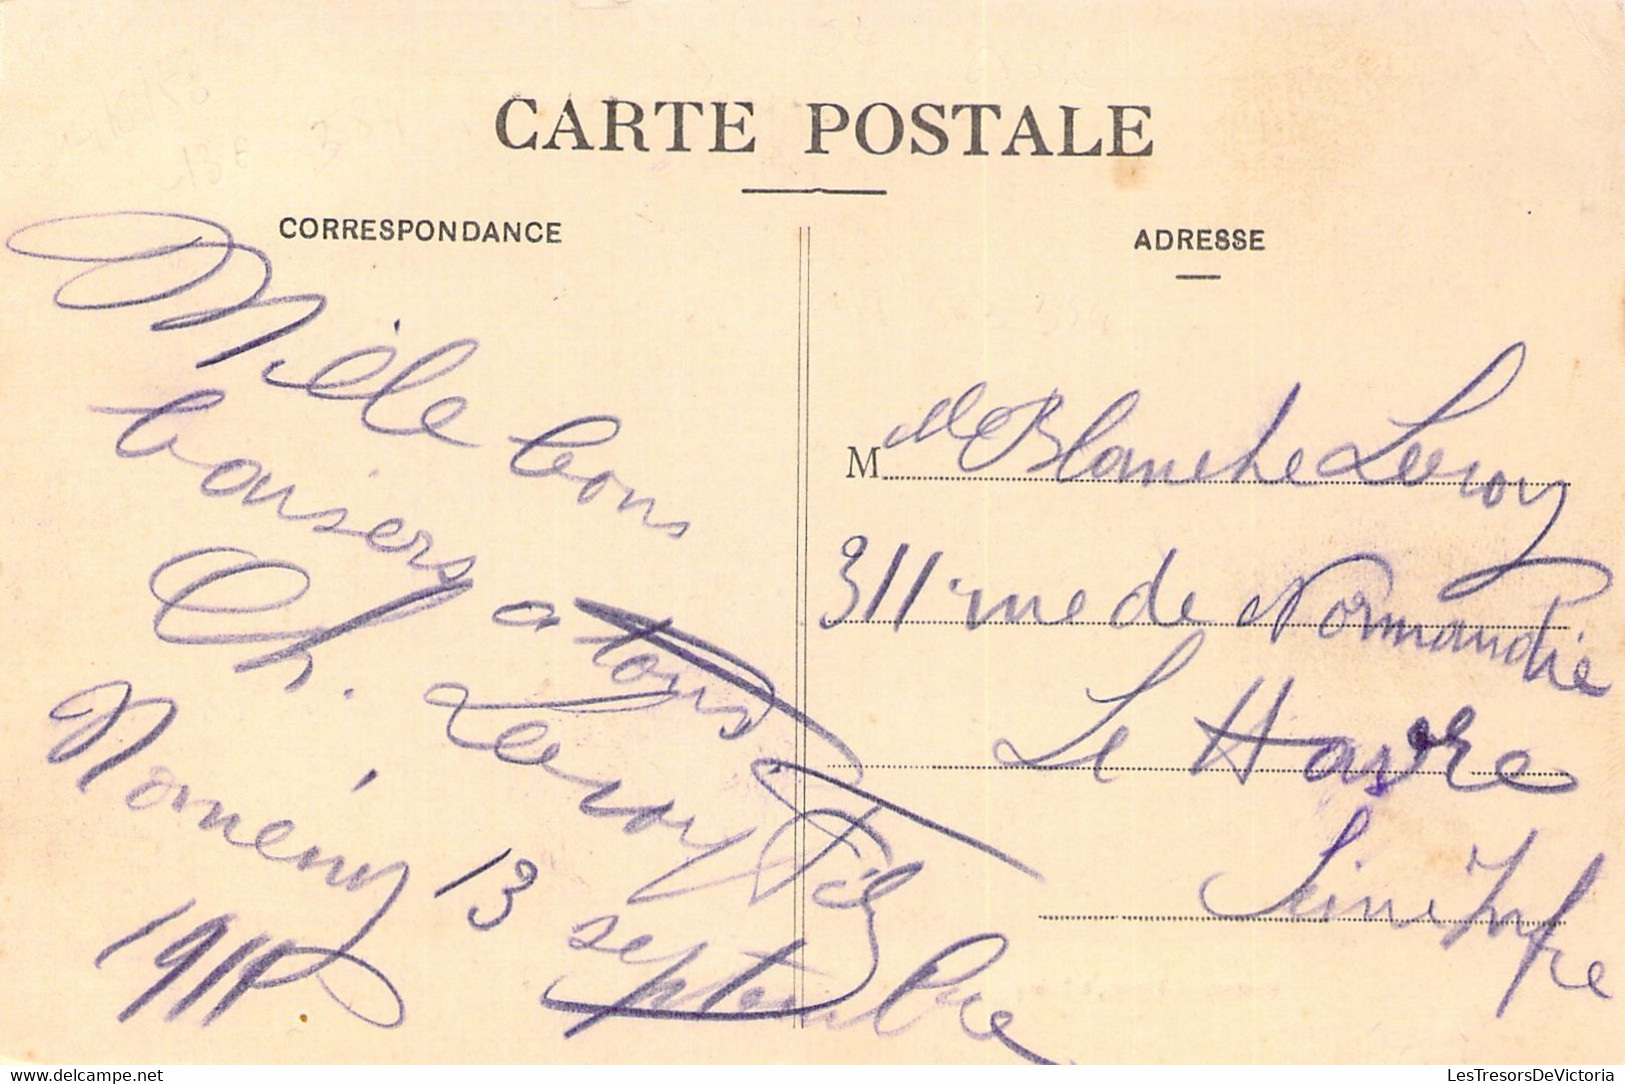 CARTE POSTALE
CORRESPONDANCE
Mille bons
baisers a tous
Ch. Leroy Fils
Nomény 13 septembre
1911
ADRESSE
M Blanche Leroy
311 rue de Normandie
Le Havre
Seine Infre
LesTresorsDeVictoria